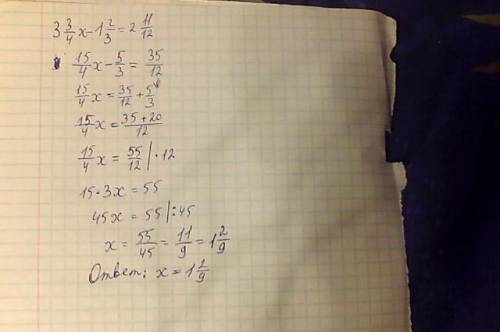 3 3/4 x - 1 2/3 = 2 11/12
15/4 x - 5/3 = 35/12
15/4 x = 35/12 + 5/3
15/4 x = (35+20)/12
15/4 x = 55/12 | · 12
15 · 3x = 55
45x = 55 | : 45
x = 55/45 = 11/9 = 1 2/9
Ответ: x = 1 2/9